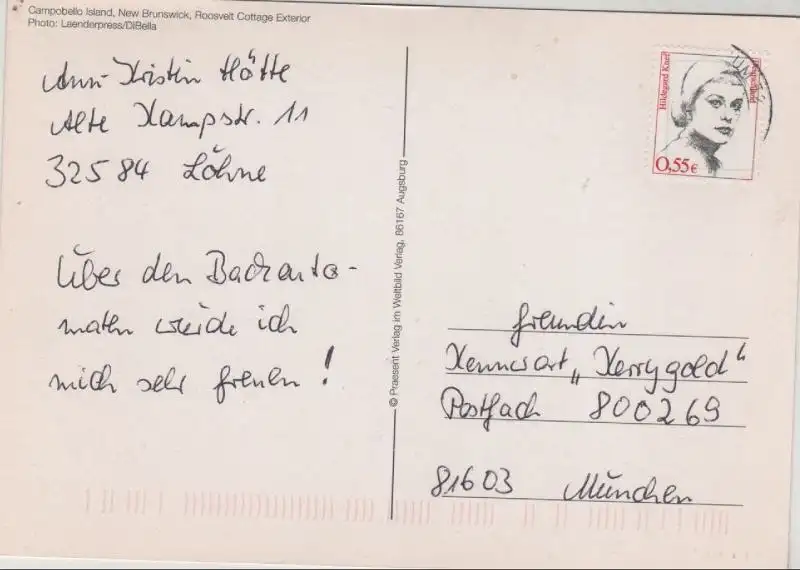 Campobello Island, New Brunswick, Roosvelt Cottage Exterior
Photo: Laenderpress/DiBella
Ann-Kristin Hötte
Alte Kampstr. 11
32584 Löhne
Über den Backauto-
maten würde ich
mich sehr freuen!
© Praesent Verlag im Weltbild Verlag, 86167 Augsburg
Hildegard Knef
0,55€
freundin
Kennwort „Kerrygold“
Postfach 800269
81603 München